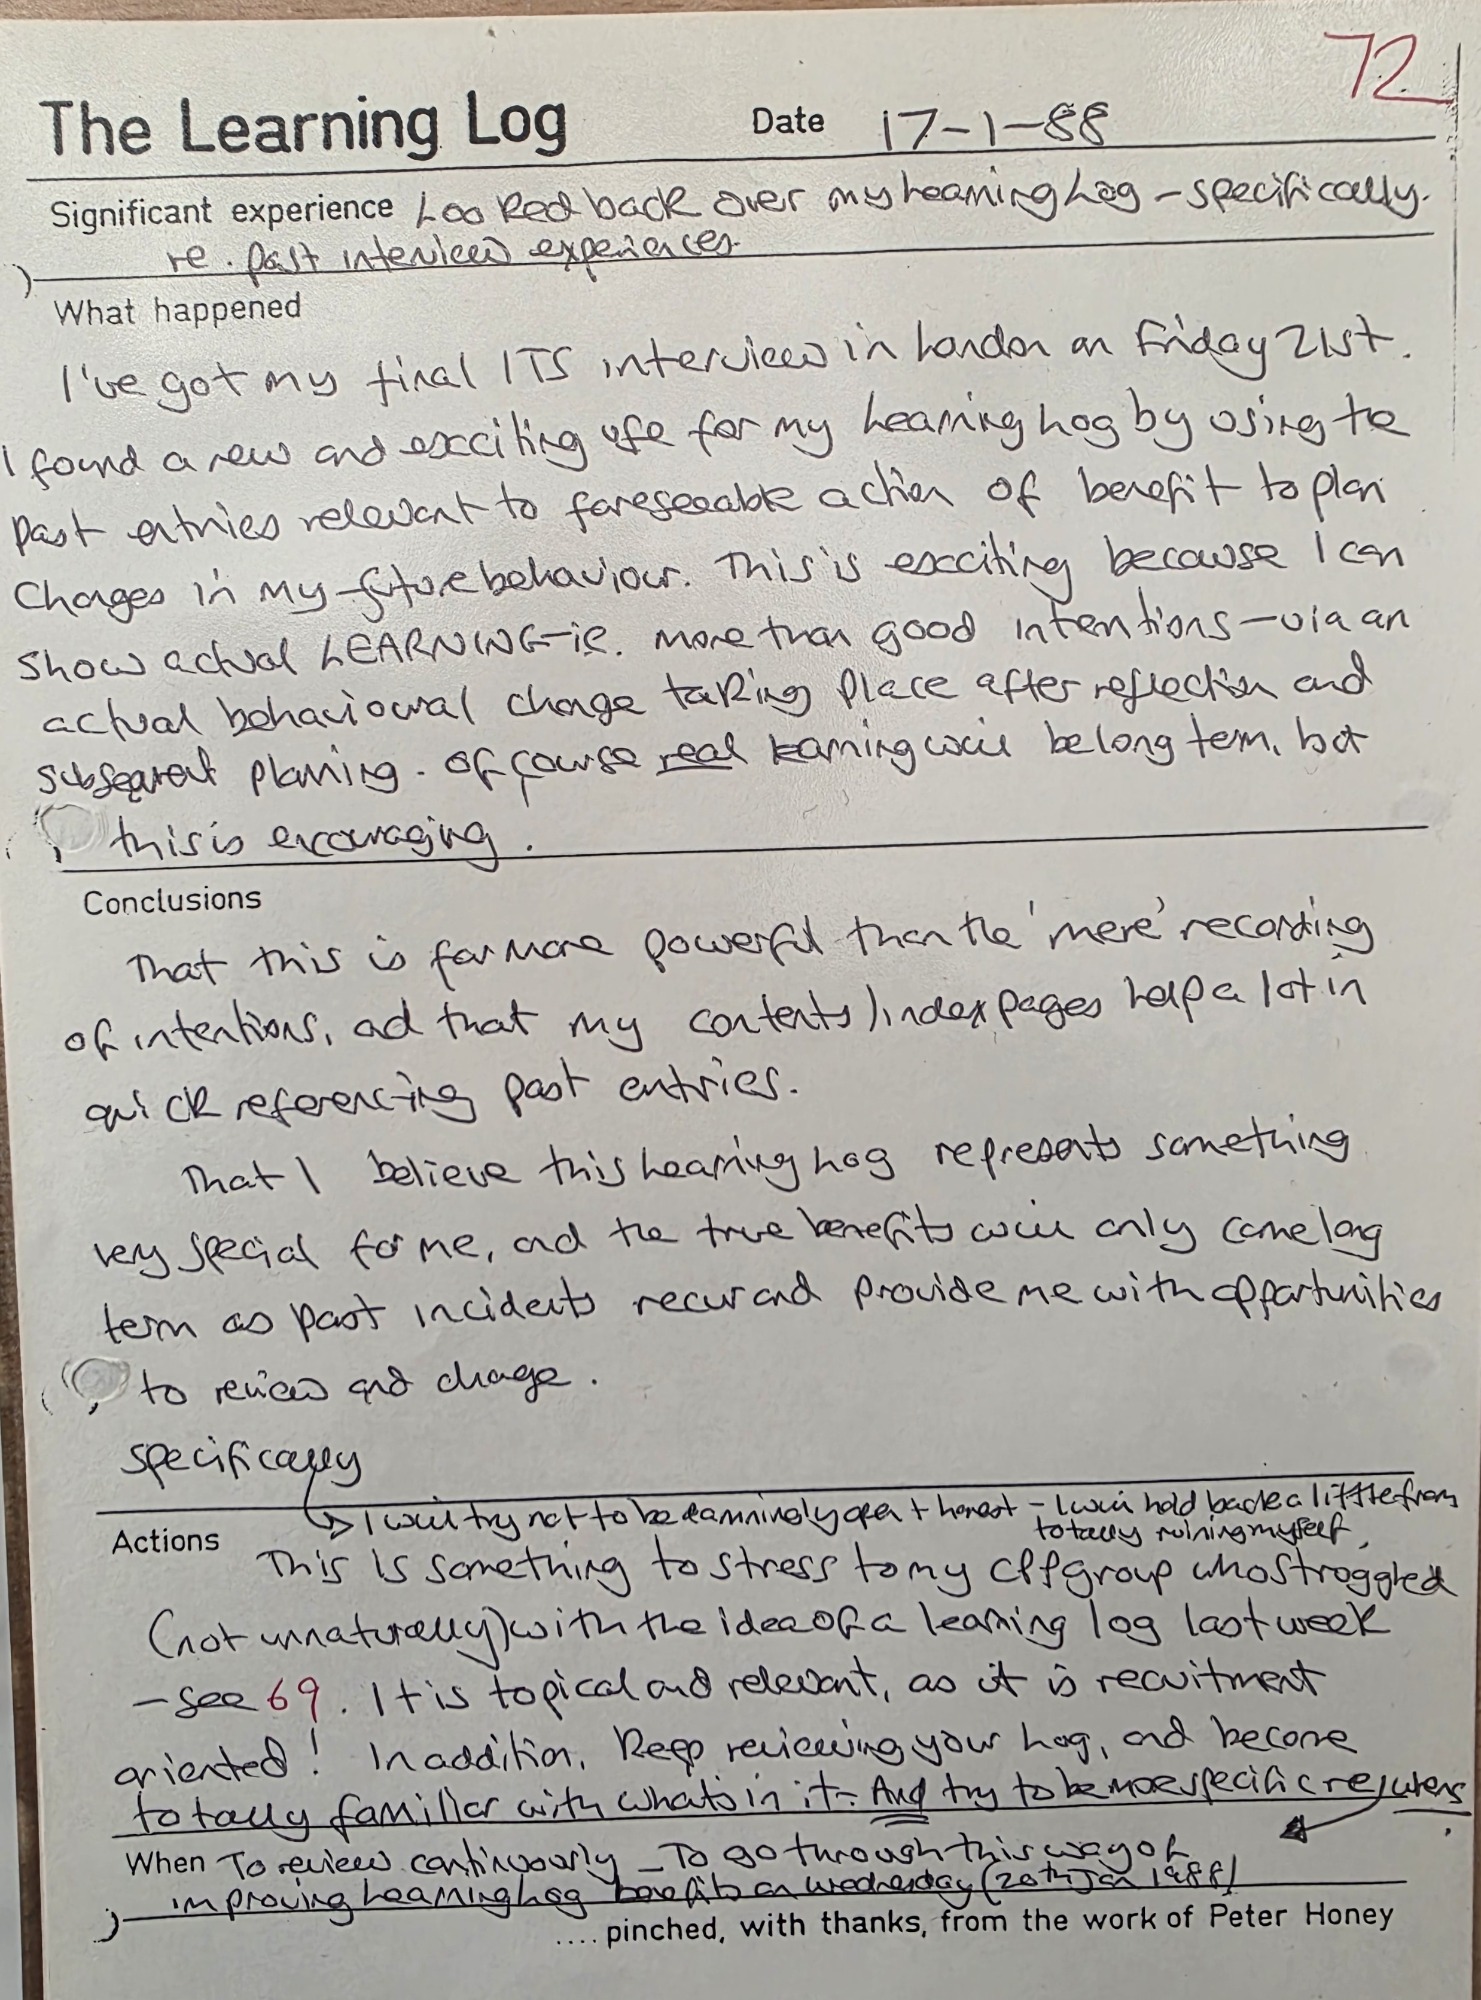 72
The Learning Log Date 17-1-88
Significant experience Looked back over my Learning Log - specifically.
re. past interview experiences.
What happened
I've got my final ITS interview in London on Friday 21st.
I found a new and exciting use for my Learning Log by using the
past entries relevant to foreseeable action of benefit to plan
changes in my future behaviour. This is exciting because I can
show actual LEARNING - ie. more than good intentions - via an
actual behavioural change taking place after reflection and
subsequent planning. Of course real learning will be long term, but
this is encouraging.
Conclusions
That this is far more powerful than the 'mere' recording
of intentions, and that my contents/index pages help a lot in
quick referencing past entries.
That I believe this Learning Log represents something
very special for me, and the true benefits will only come long
term as past incidents recur and provide me with opportunities
to review and change.
specifically
I will try not to be damningly open + honest - I will hold back a little from
totally ruining myself.
Actions
This is something to stress to my group who struggled
(not unnaturally) with the idea of a learning log last week
- see 69. It is topical and relevant, as it is recruitment
oriented! In addition, keep reviewing your Log, and become
totally familiar with whats in it. And try to be more specific re
When To review continuously - To go through this way of
improving Learning Log benefits on Wednesday (20th Jan 1988)
.... pinched, with thanks, from the work of Peter Honey